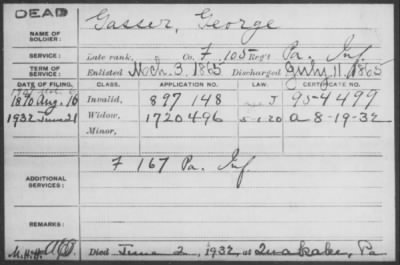 DEAD
NAME OF SOLDIER: Gasser, George
SERVICE: Late rank, Co. F 105 Reg't Pa. Inf
TERM OF SERVICE: Enlisted Mch. 3. 1865 Discharged July 11, 1865
DATE OF FILING. CLASS. APPLICATION NO. LAW. CERTIFICATE NO.
1890 Aug. 16 Invalid, 897 148 954499
1932 June 21 Widow, 1720496 5-1-20 a-8-19-32
Minor,
ADDITIONAL SERVICES: F 167 Pa. Inf.
REMARKS:
Died June 2, 1932, at Quakake, Pa